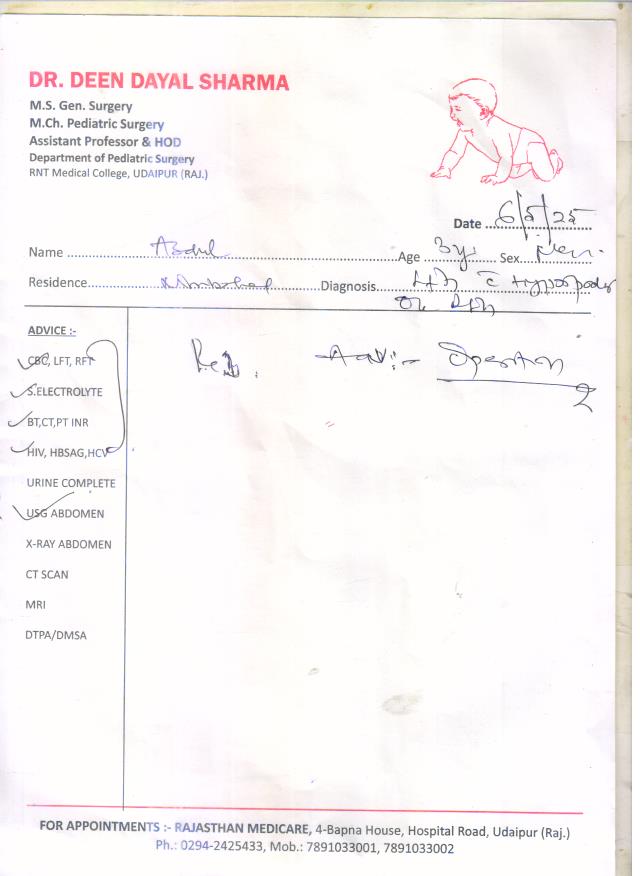 DR. DEEN DAYAL SHARMA
M.S. Gen. Surgery
M.Ch. Pediatric Surgery
Assistant Professor & HOD
Department of Pediatric Surgery
RNT Medical College, UDAIPUR (RAJ.)
Date 6/5/25
Name Abdul Age 3y. Sex
Residence Diagnosis
ADVICE :-
CBC, LFT, RFT
S.ELECTROLYTE
BT,CT,PT INR
HIV, HBSAG,HCV
URINE COMPLETE
USG ABDOMEN
X-RAY ABDOMEN
CT SCAN
MRI
DTPA/DMSA
Adv:-
FOR APPOINTMENTS :- RAJASTHAN MEDICARE, 4-Bapna House, Hospital Road, Udaipur (Raj.)
Ph.: 0294-2425433, Mob.: 7891033001, 7891033002